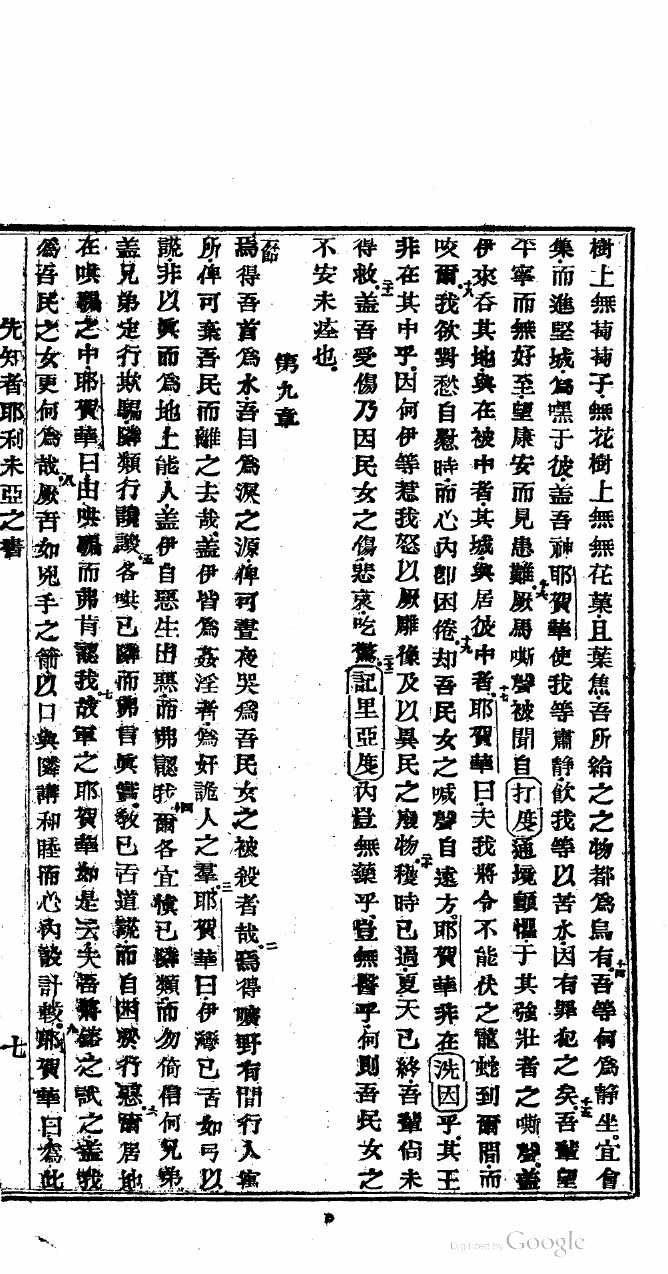 樹上無萄萄子無花樹上無無花菓且葉焦吾所給之之物都為烏有十四吾等何為靜坐宜會
集而進堅城為嘿于彼蓋吾神耶賀華使我等肅靜飲我等以苦水因有罪犯之矣十五吾輩望
平寧而無好至望康安而見患難十六厥馬嘶聲被聞自打度通境顫懼于其強壯者之嘶聲蓋
伊來吞其地與在彼中者其城與居彼中者十七耶賀華曰夫我將令不能伏之龍蛇到爾間而
咬爾十八我欲對愁自慰時而心內卽困倦十九却吾民女之喊聲自遠方耶賀華非在洗因乎其王
非在其中乎因何伊等惹我怒以厥雕像及以異民之廢物二十穫時已過夏天已終吾輩尙未
得救二一蓋吾受傷乃因民女之傷悲哀吃驚二二記里亞度內豈無藥乎豈無醫乎何則吾民女之
不安未痊也
第九章
一節焉得吾首為水吾目為淚之源俾可晝夜哭為吾民女之被殺者哉二焉得曠野有間行人寓
所俾可棄吾民而離之去哉蓋伊皆為姦淫者為奸詭人之羣三耶賀華曰伊灣已舌如弓以
謊非以眞而為地上能人蓋伊自惡生出惡而弗認我四爾各宜愼已隣類而勿倚信何兄弟
蓋兄弟定行欺騙隣類行讒謗五各哄已隣而弗言眞實教已舌道謊而自困於行惡六爾居地
在哄騙之中耶賀華曰由哄騙而弗肯認我七故軍之耶賀華如是云夫吾將鎔之試之蓋我
為吾民之女更何為哉八厥舌如兇手之箭以口與隣講和睦而心內設計較九耶賀華曰為此
先知者耶利未亞之書
七
Digitized by Google